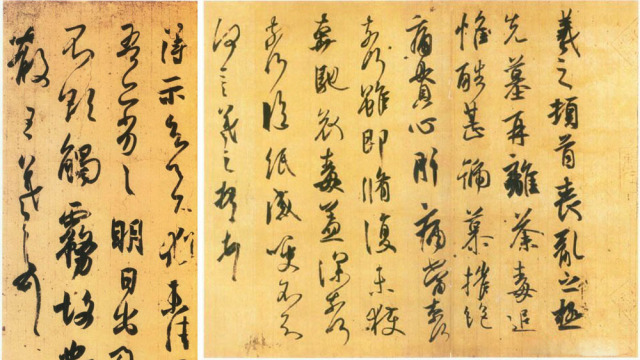 羲之頓首喪亂之極
先墓再離荼毒追
惟酷甚號慕摧絕
痛貫心肝痛當奈何
奈何雖即脩復未獲
奔馳哀毒益深奈何
奈何臨紙感哽不知
何言羲之頓首頓首
得示知足下猶未佳
吾亦劣劣明日出乃
不欲觸霧故也
散王羲之頓首